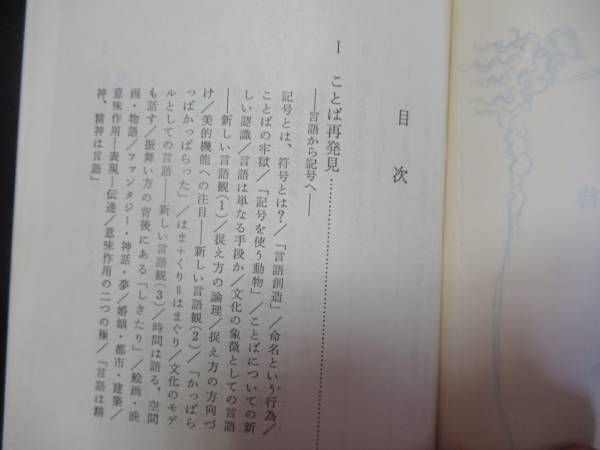 目次
I ことば再発見……………………
――言語から記号へ――
記号とは、符号とは?/「言語創造」/命名という行為/
ことばの牢獄/「記号を使う動物」/ことばについての新
しい認識/言語は単なる手段か/文化の象徴としての言語
――新しい言語観(1)/捉え方の論理/捉え方の方向づ
け/美的機能への注目――新しい言語観(2)/「かっぱら
っぱかっぱらった」/はま+くり=はまぐり/文化のモデ
ルとしての言語――新しい言語観(3)/時間は語る、空間
も話す/振舞い方の背後にある「しきたり」/絵画・映
画・物語/ファンタジー・神話・夢/婚姻・都市・建築/
意味作用―表現―伝達/意味作用の二つの極/「言語は精
神、精神は言語」